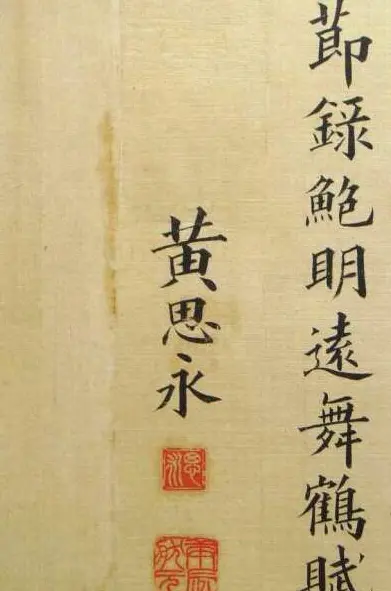 節錄鮑明遠舞鶴賦
黃思永
思永